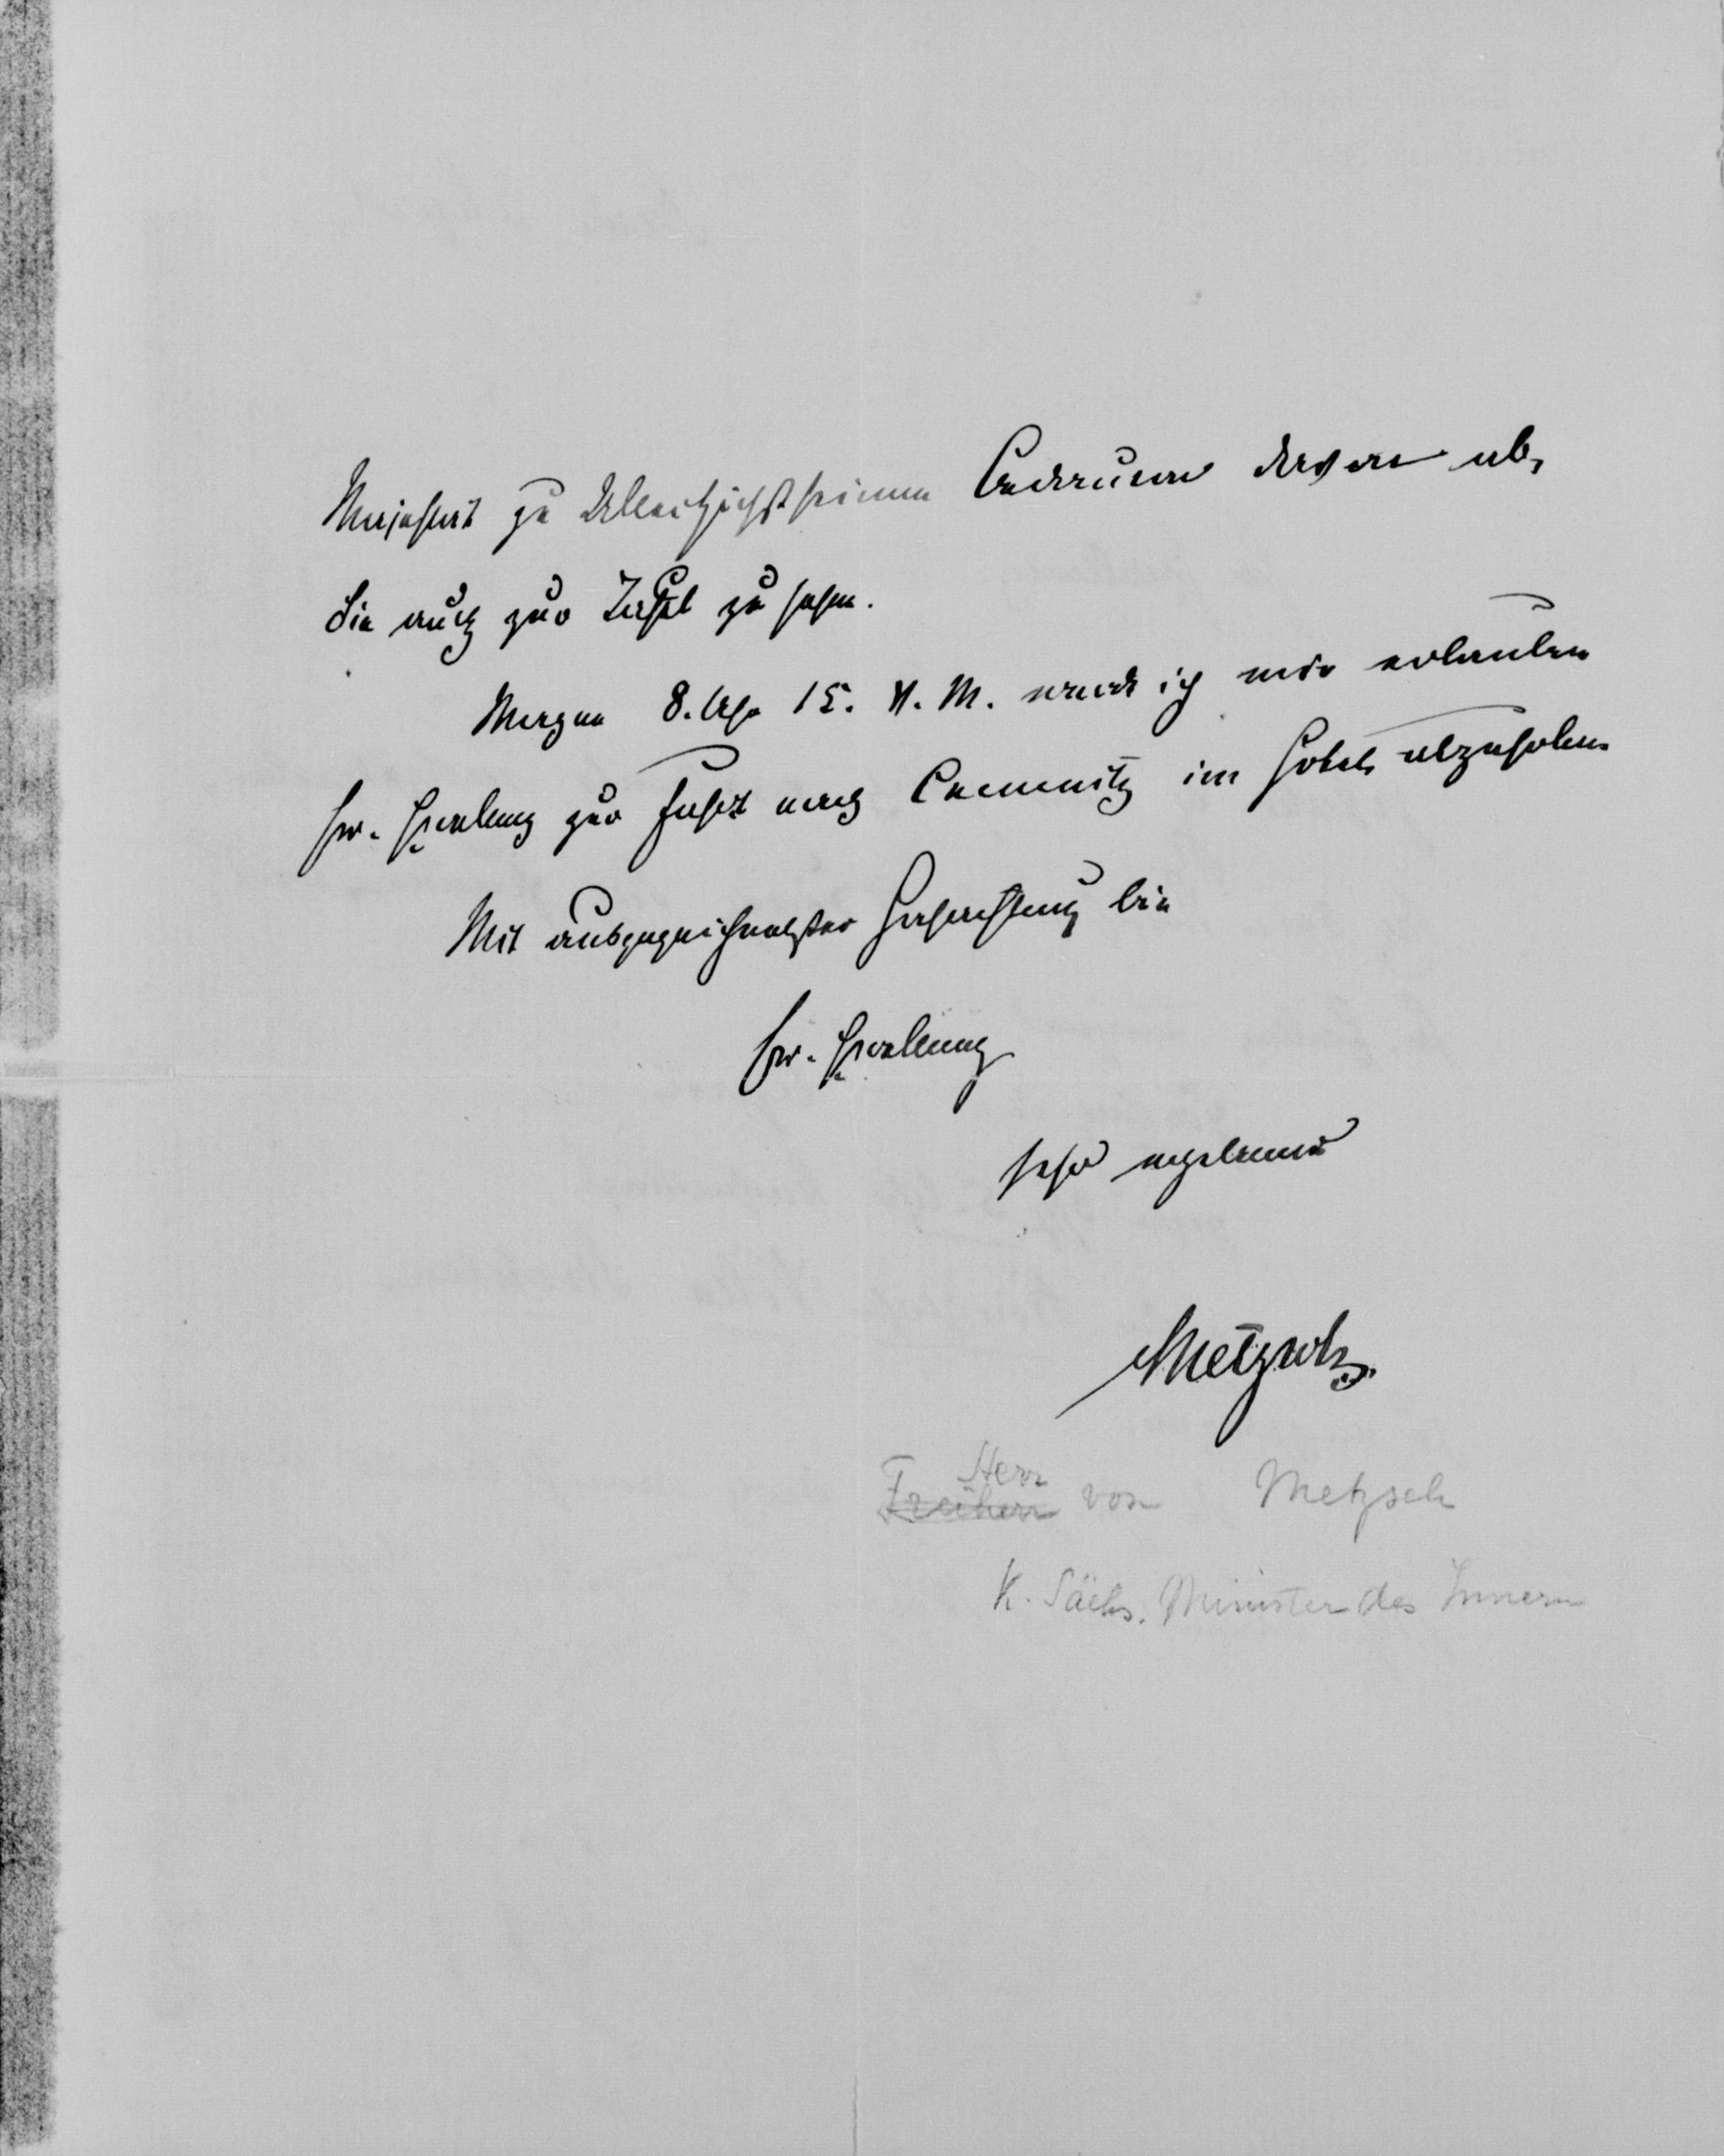 Majestät zu Allerhöchstseinem Bedauern davon ab,
Sie auch zur Tafel zu sehen.
Morgen 8. Uhr 15. V. M. werde ich mir erlauben
Ew. Excellenz zur Fahrt nach Chemnitz im Hotel abzuholen.
Mit ausgezeichnetster Hochachtung bin
Ew. Excellenz
sehr ergebener
Metzsch.
Herr
Freiherr von Metzsch
K. Sächs. Minister des Innern